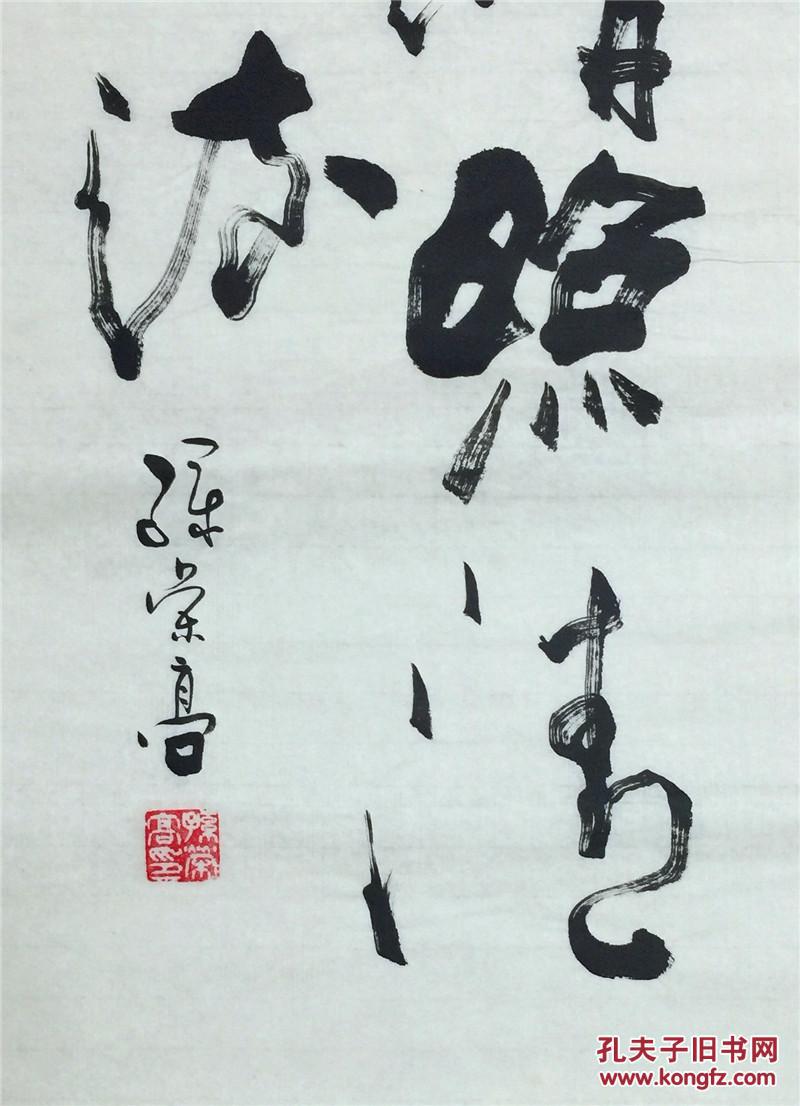 照清
流
孫荣高
孫榮高印
孔夫子旧书网
www.kongfz.com